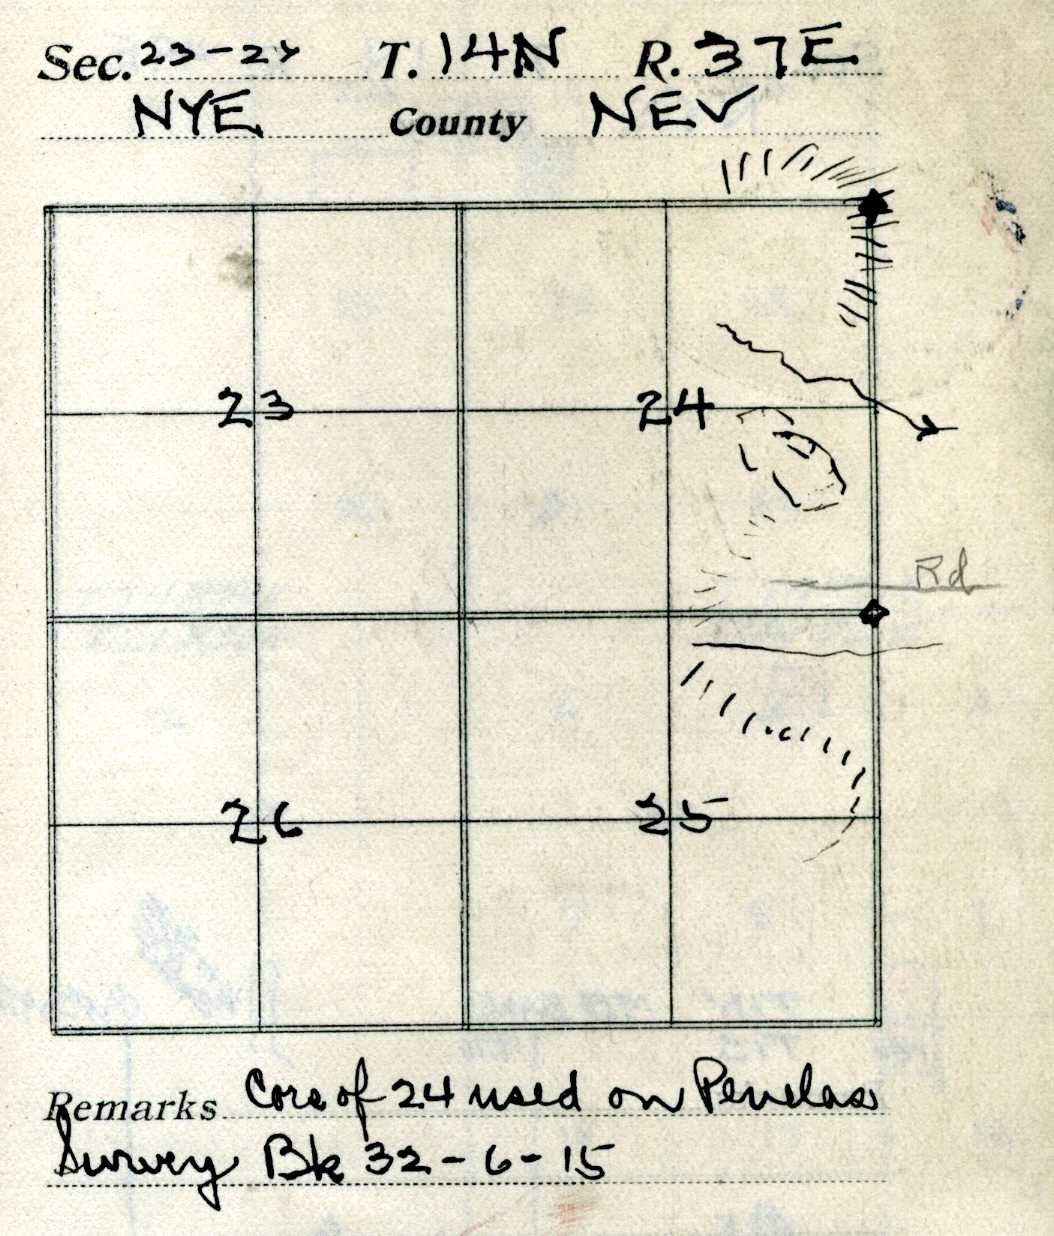 Sec. 23-24 T. 14N R. 37E
NYE County NEV
23 24
Rd
26 25
Remarks Cors of 24 used on Penelas
Survey Bk 32-6-15